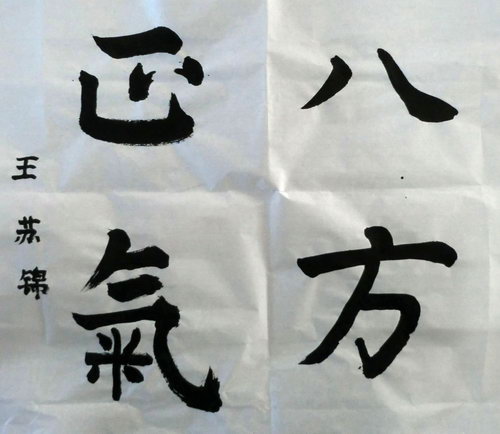 八方
正氣
王苏锦